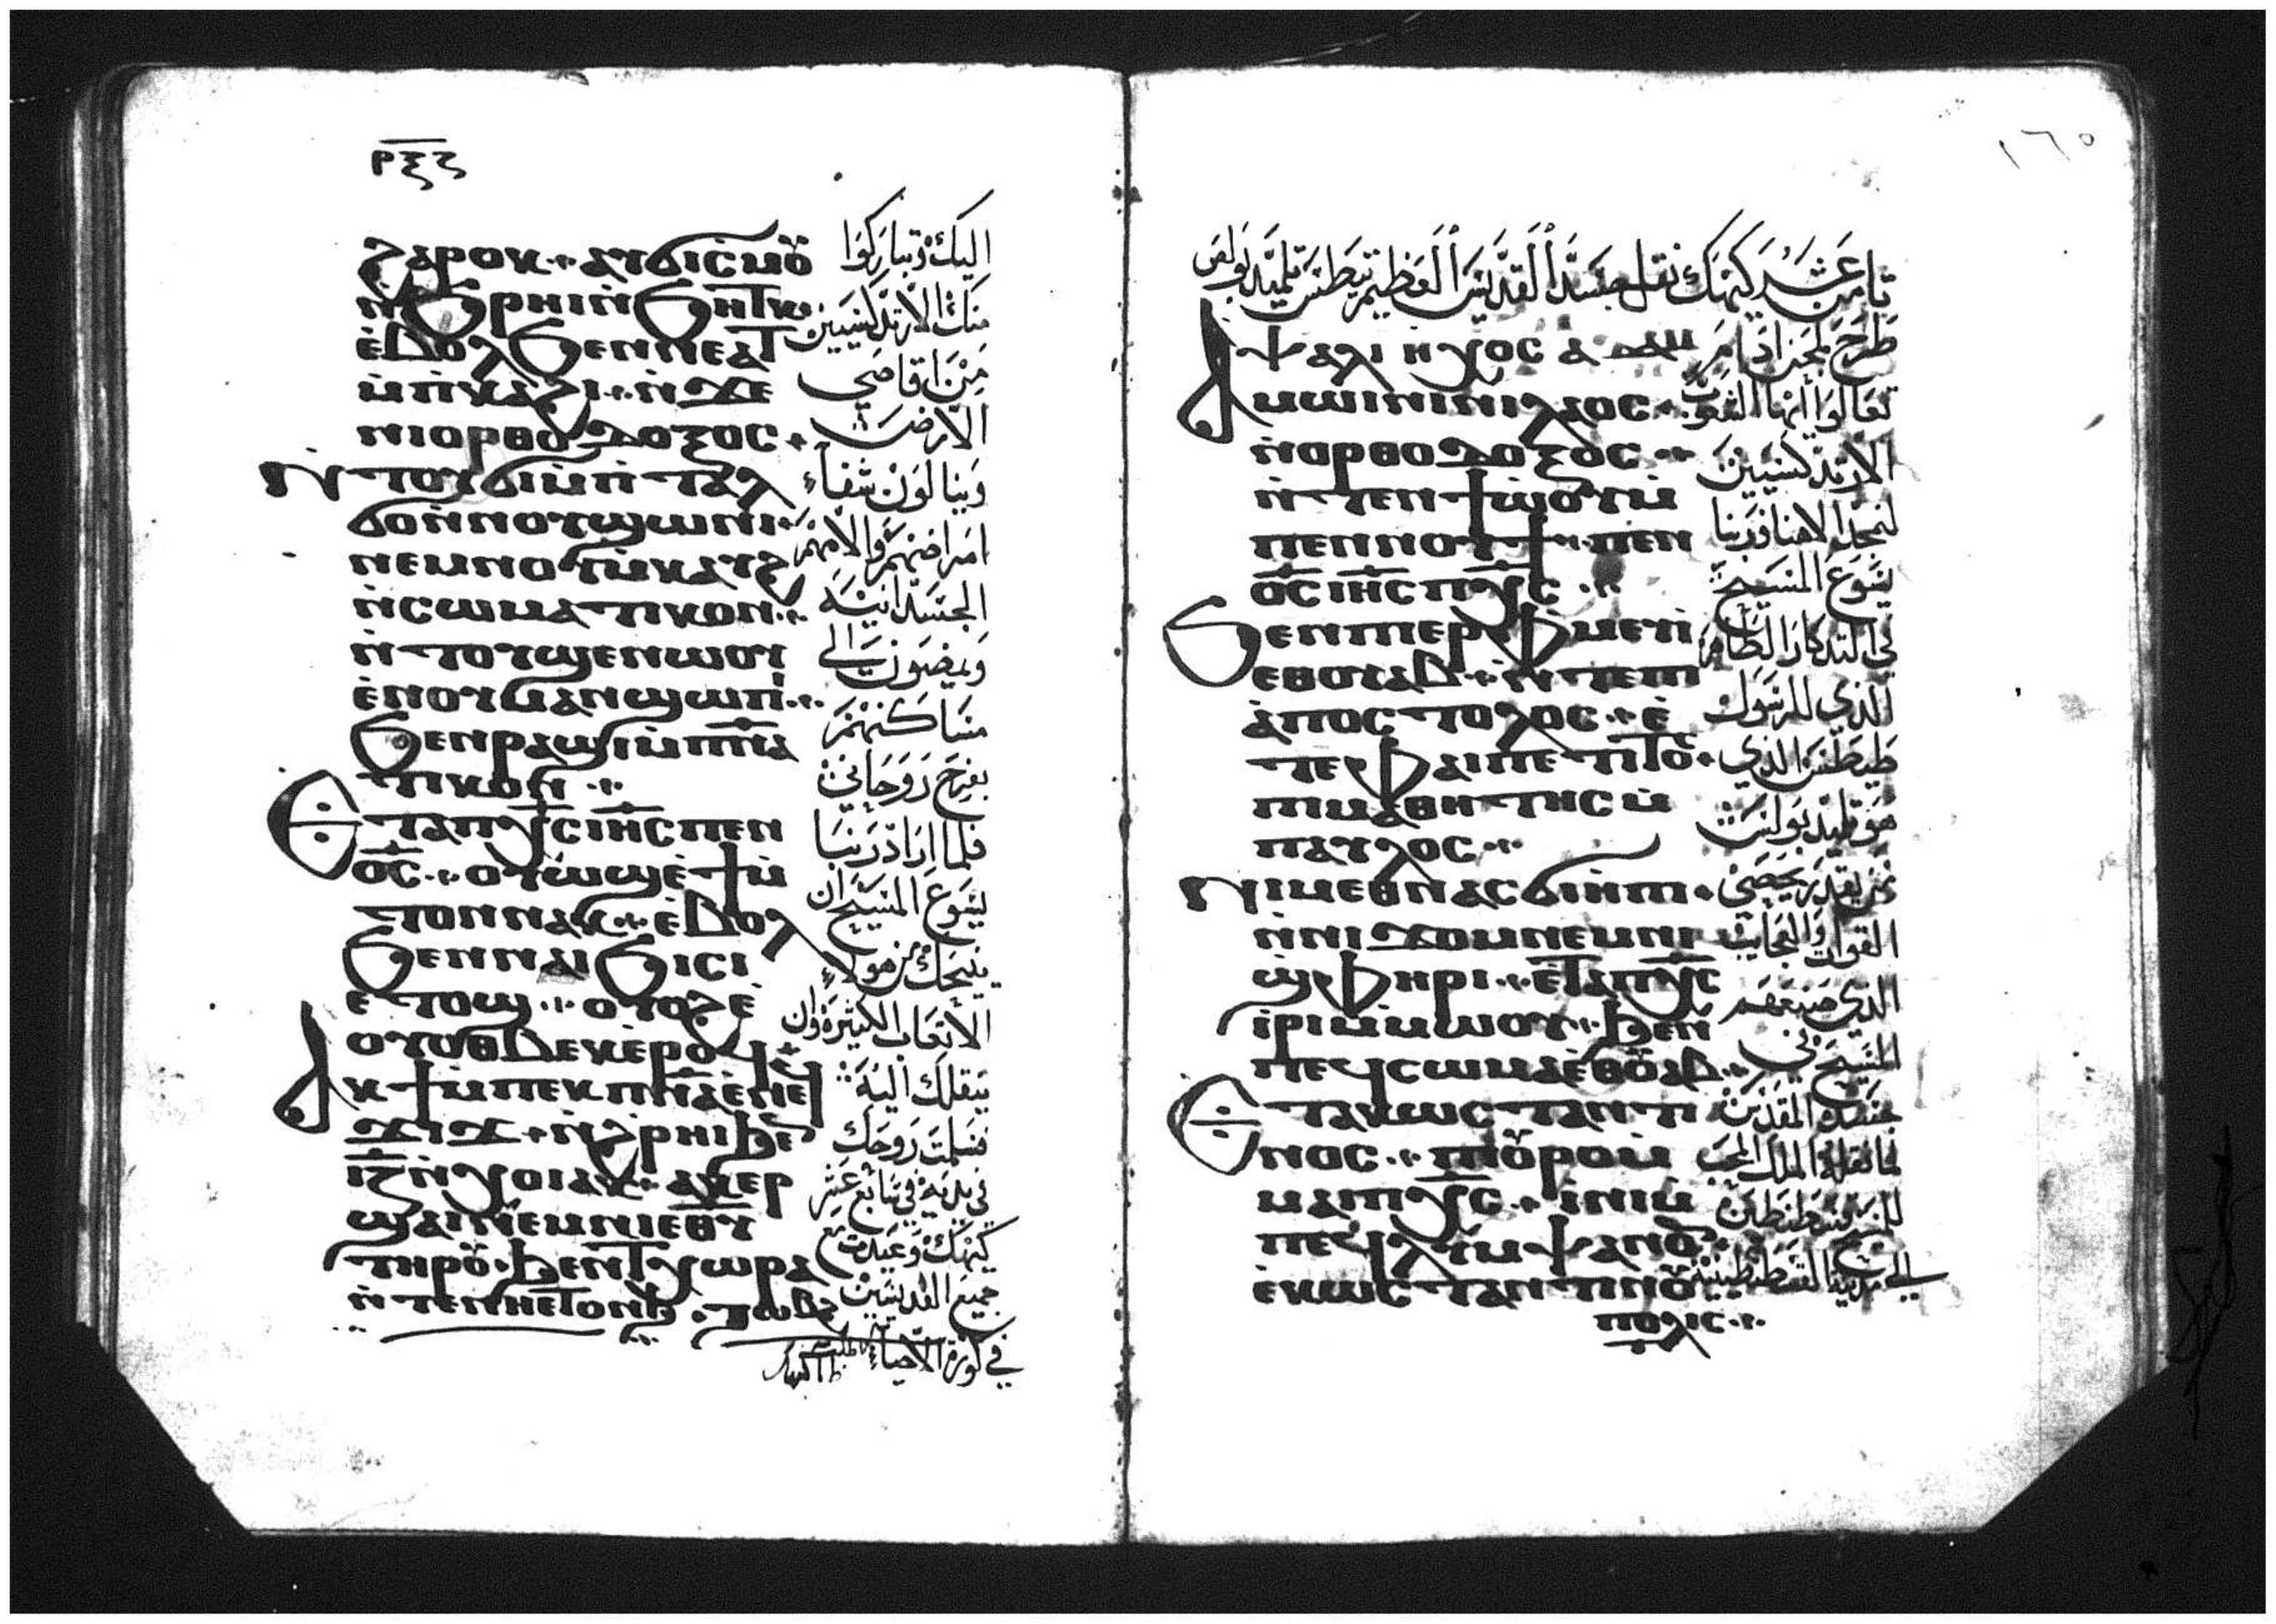 ⲣⲝⲋ
ϩⲁⲣⲟⲕ ⲁⲩϭⲓⲥⲙⲟⲩ
ⲛ̀ϧⲣⲏⲓ ⲛ̀ϧⲏⲧⲕ
ⲉ̀ⲃⲟⲗ ϧⲉⲛⲛⲉⲁⲧ
ⲙ̀ⲡ̀ⲕⲁϩⲓ ⲛ̀ϫⲉ
ⲛⲓⲟⲣⲑⲟⲇⲟⲝⲟⲥ
ⲛ̀ⲧⲟⲩϭⲓⲙ̀ⲡ̀ⲧⲁⲗ
ϭⲟ ⲛ̀ⲛⲟⲩϣⲱⲛⲓ
ⲛⲉⲙⲛⲟⲩⲙ̀ⲕⲁⲩϩ
ⲛ̀ⲥⲱⲙⲁⲧⲓⲕⲟⲛ
ⲛ̀ⲧⲟⲩϣⲉⲛⲱⲟⲩ
ⲉ̀ⲛⲟⲩⲙⲁⲛϣⲱⲡⲓ
ϧⲉⲛⲣⲁϣⲓ ⲙ̀ⲡ̅ⲛ̅ⲁ̅
ⲧⲓⲕⲟⲛ
ⲉⲧⲁⲡⲭ̅ⲥ̅ ⲓⲏ̅ⲥ̅ ⲡⲉⲛ
ⲟ̅ⲥ̅ ⲟⲩⲱϣ ⲉ̀ϯⲙ̀
ⲧⲟⲛⲛⲁⲕ ⲉ̀ⲃⲟⲗ
ϧⲉⲛⲛⲁⲓϧⲓⲥⲓ
ⲉⲧⲟϣ ⲟⲩⲟϩ ⲉ̀
ⲟⲩⲟⲑⲃⲉⲕ ⲉ̀ⲣⲟϥ
ⲁⲕϯ ⲙ̀ⲡⲉⲕⲡ̅ⲛ̅ⲁ̅ ⲉ̀ⲛⲉϥ
ϫⲓϫ ⲛ̀ϩⲣⲏⲓ ϧⲉⲛ
ⲓⲍ ⲛ̀ⲭⲟⲓⲁⲕ ⲁⲕⲉⲣ
ϣⲁⲓ ⲛⲉⲙ ⲛⲓⲉⲑⲩ
ⲧⲏⲣⲟⲩ ϧⲉⲛ ⲧⲭⲱⲣⲁ
ⲛ̀ⲧⲉⲛⲏⲉⲧⲟⲛϧ ⲧⲱⲃϩ
اليك وتباركوا
منك الارتدكسيين
من اقاصي
الارض
وينالون شفاء
امراضهم والامهم
الجسدانيه
ويمضون الى
مساكنهم
بفرح روحاني
فلما اراد ربنا
يسوع المسيح ان
ينيحك من هولاء
الاتعاب الكثيره وان
ينقلك اليه
فسلمت روحك
في يديه في سابع عشر
كيهك وعيدت مع
جميع القديسين
في كورة الاحياء
١٦٥
ثامن عشر كيهك نقل جسد القديس العظيم تيطس تلميذ بولس
ⲯⲁⲗⲓ ⲏⲭⲟⲥ ⲁⲇⲁⲙ
ⲁⲙⲱⲓⲛⲓ ⲛⲓⲗⲁⲟⲥ
ⲛ̀ⲟⲣⲑⲟⲇⲟⲝⲟⲥ
ⲛ̀ⲧⲉⲛϯⲱ̀ⲟⲩ ⲙ̀
ⲡⲉⲛⲛⲟⲩϯ ⲡⲉⲛ
ⲟ̅ⲥ̅ ⲓⲏ̅ⲥ̅ ⲡⲭ̅ⲥ̅
ϧⲉⲛⲡⲓⲉⲣⲫⲙⲉⲩⲓ
ⲉⲑⲟⲩⲁⲃ ⲛ̀ⲧⲉⲡⲓ
ⲁ̀ⲡⲟⲥⲧⲟⲗⲟⲥ ⲉ̀
ⲧⲉⲫⲁⲓⲡⲉ ⲧⲓⲧⲟⲥ
ⲡⲓⲙⲁⲑⲏⲧⲏⲥ ⲙ̀
ⲡⲁⲩⲗⲟⲥ
ⲛⲓⲙ ⲉⲑⲛⲁⲥϭⲓⲏ̀ⲡⲓ
ⲛ̀ⲛⲓϫⲟⲙ ⲛⲉⲙⲛⲓ
ϣⲫⲏⲣⲓ ⲉ̀ⲧⲁⲡⲭ̅ⲥ̅
ⲓ̀ⲣⲓ ⲙ̀ⲙⲱⲟⲩ ϧⲉⲛ
ⲡⲉϥⲥⲱⲙⲁ ⲉ̀ⲑⲟⲩⲁⲃ
ⲉⲧⲁⲕⲱⲥⲧⲁⲛⲧⲓ
ⲛⲟⲥ ⲡⲓⲟⲩⲣⲟ ⲙ̀
ⲙⲁⲓⲡⲭ̅ⲥ̅ ⲓ̀ⲛⲓ ⲙ̀
ⲡⲉϥⲗⲩⲙⲯⲁⲛⲟⲛ
ⲉ̀ⲕⲱⲥⲧⲁⲛⲧⲓⲛⲟⲩ
ⲡⲟⲗⲓⲥ
طرح لحن ادام
تعالوا ايها الشعوب
الارتدكسيين
لنمجد الاهنا وربنا
يسوع المسيح
في التذكار الطاهر
الذي للرسول
طيطس الذي
هو تلميذ بولس
من يقدر يحصي
القوات والعجايب
الذي صنعهم
المسيح في
جسده المقدس
لما نقله الملك المحب
للمسيح قسطنطين
الى مدينة القسطنطينيه